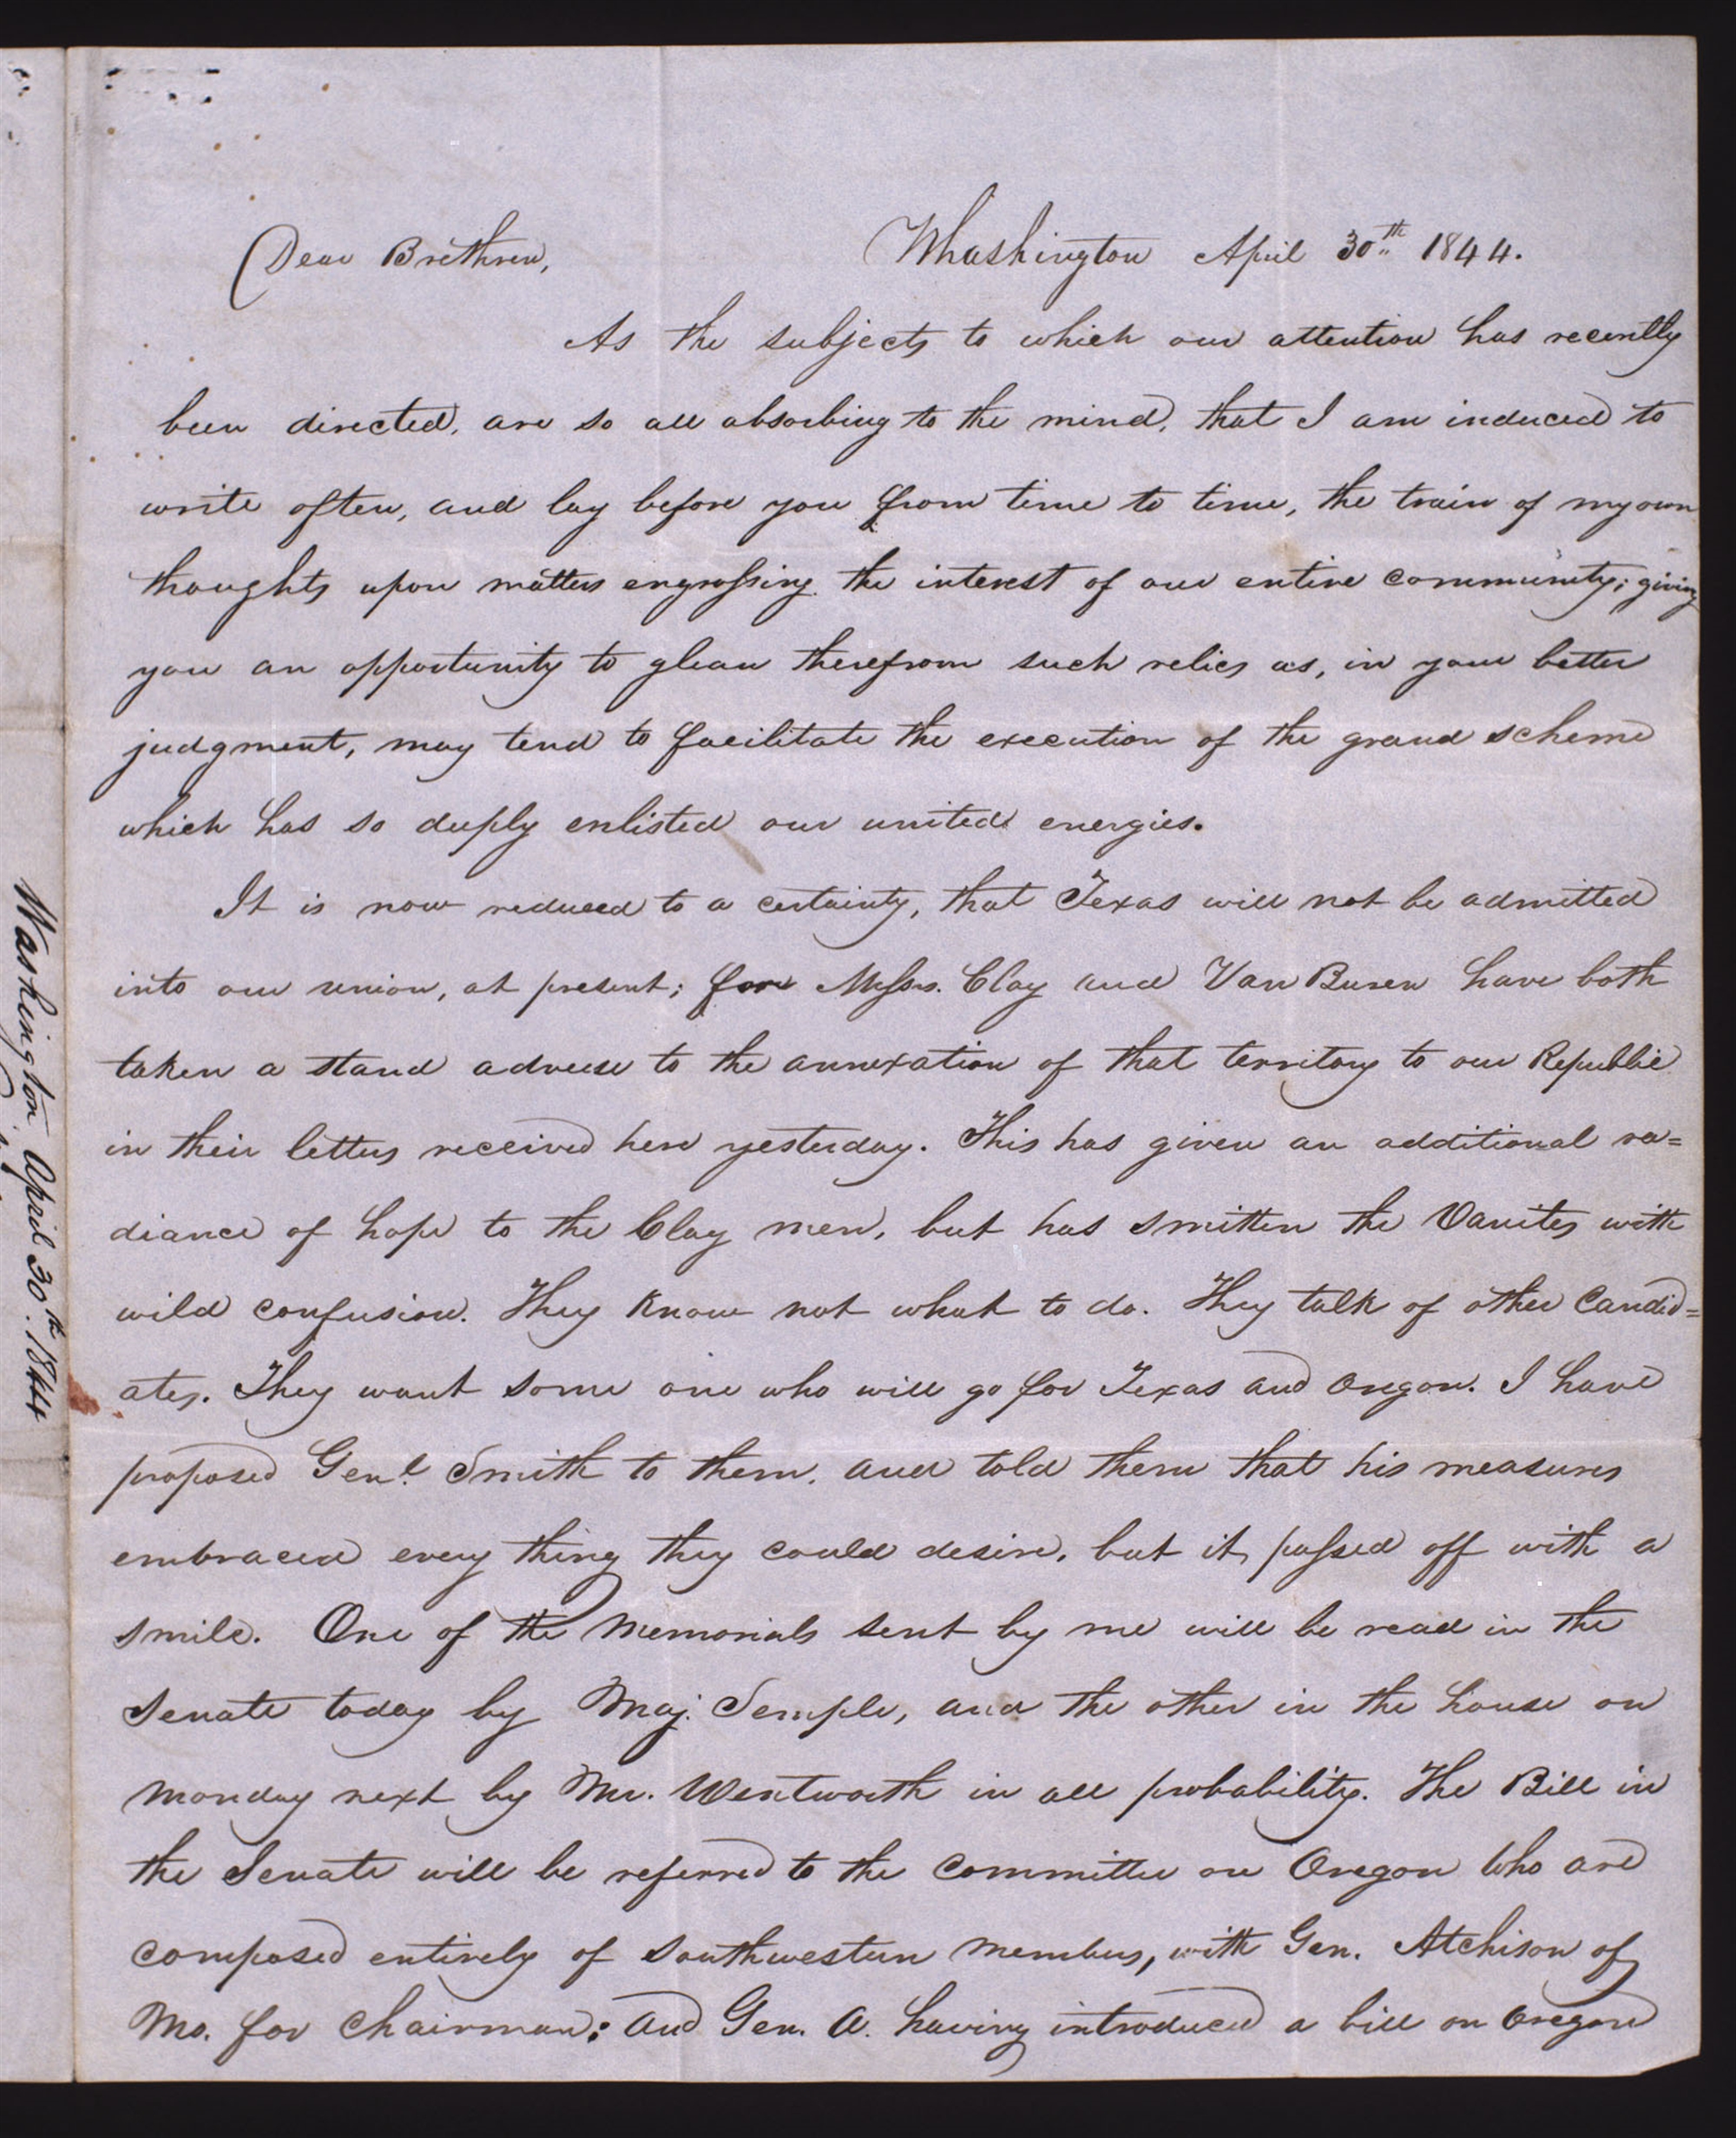 Dear Brethren,
Whashington April 30th 1844.
As the subjects to which our attention has recently
been directed, are so all absorbing to the mind, that I am induced to
write often, and lay before you from time to time, the train of my own
thoughts upon matters engrossing the interest of our entire community; giving
you an opportunity to glean therefrom such relics as, in your better
judgment, may tend to facilitate the execution of the grand scheme
which has so deeply enlisted our united energies.
It is now reduced to a certainty, that Texas will not be admitted
into our union, at present; for Messrs. Clay and Van Buren have both
taken a stand adverse to the annexation of that territory to our Republic
in their letters received here yesterday. This has given an additional ra=
diance of hope to the Clay men, but has smitten the Vanites with
wild confusion. They know not what to do. They talk of other Candid=
ates. They want some one who will go for Texas and Oregon. I have
proposed Genl. Smith to them, and told them that his measures
embraced every thing they could desire, but it passed off with a
smile. One of the Memorials sent by me will be read in the
Senate today by Maj. Semple, and the other in the house on
Monday next by Mr. Wentworth in all probability. The Bill in
the Senate will be referred to the Committee on Oregon who are
composed entirely of Southwestern Members, with Gen. Atchison of
Mo. for Chairman; and Gen. A. having introduced a bill on Oregon
Washington April 30th. 1844